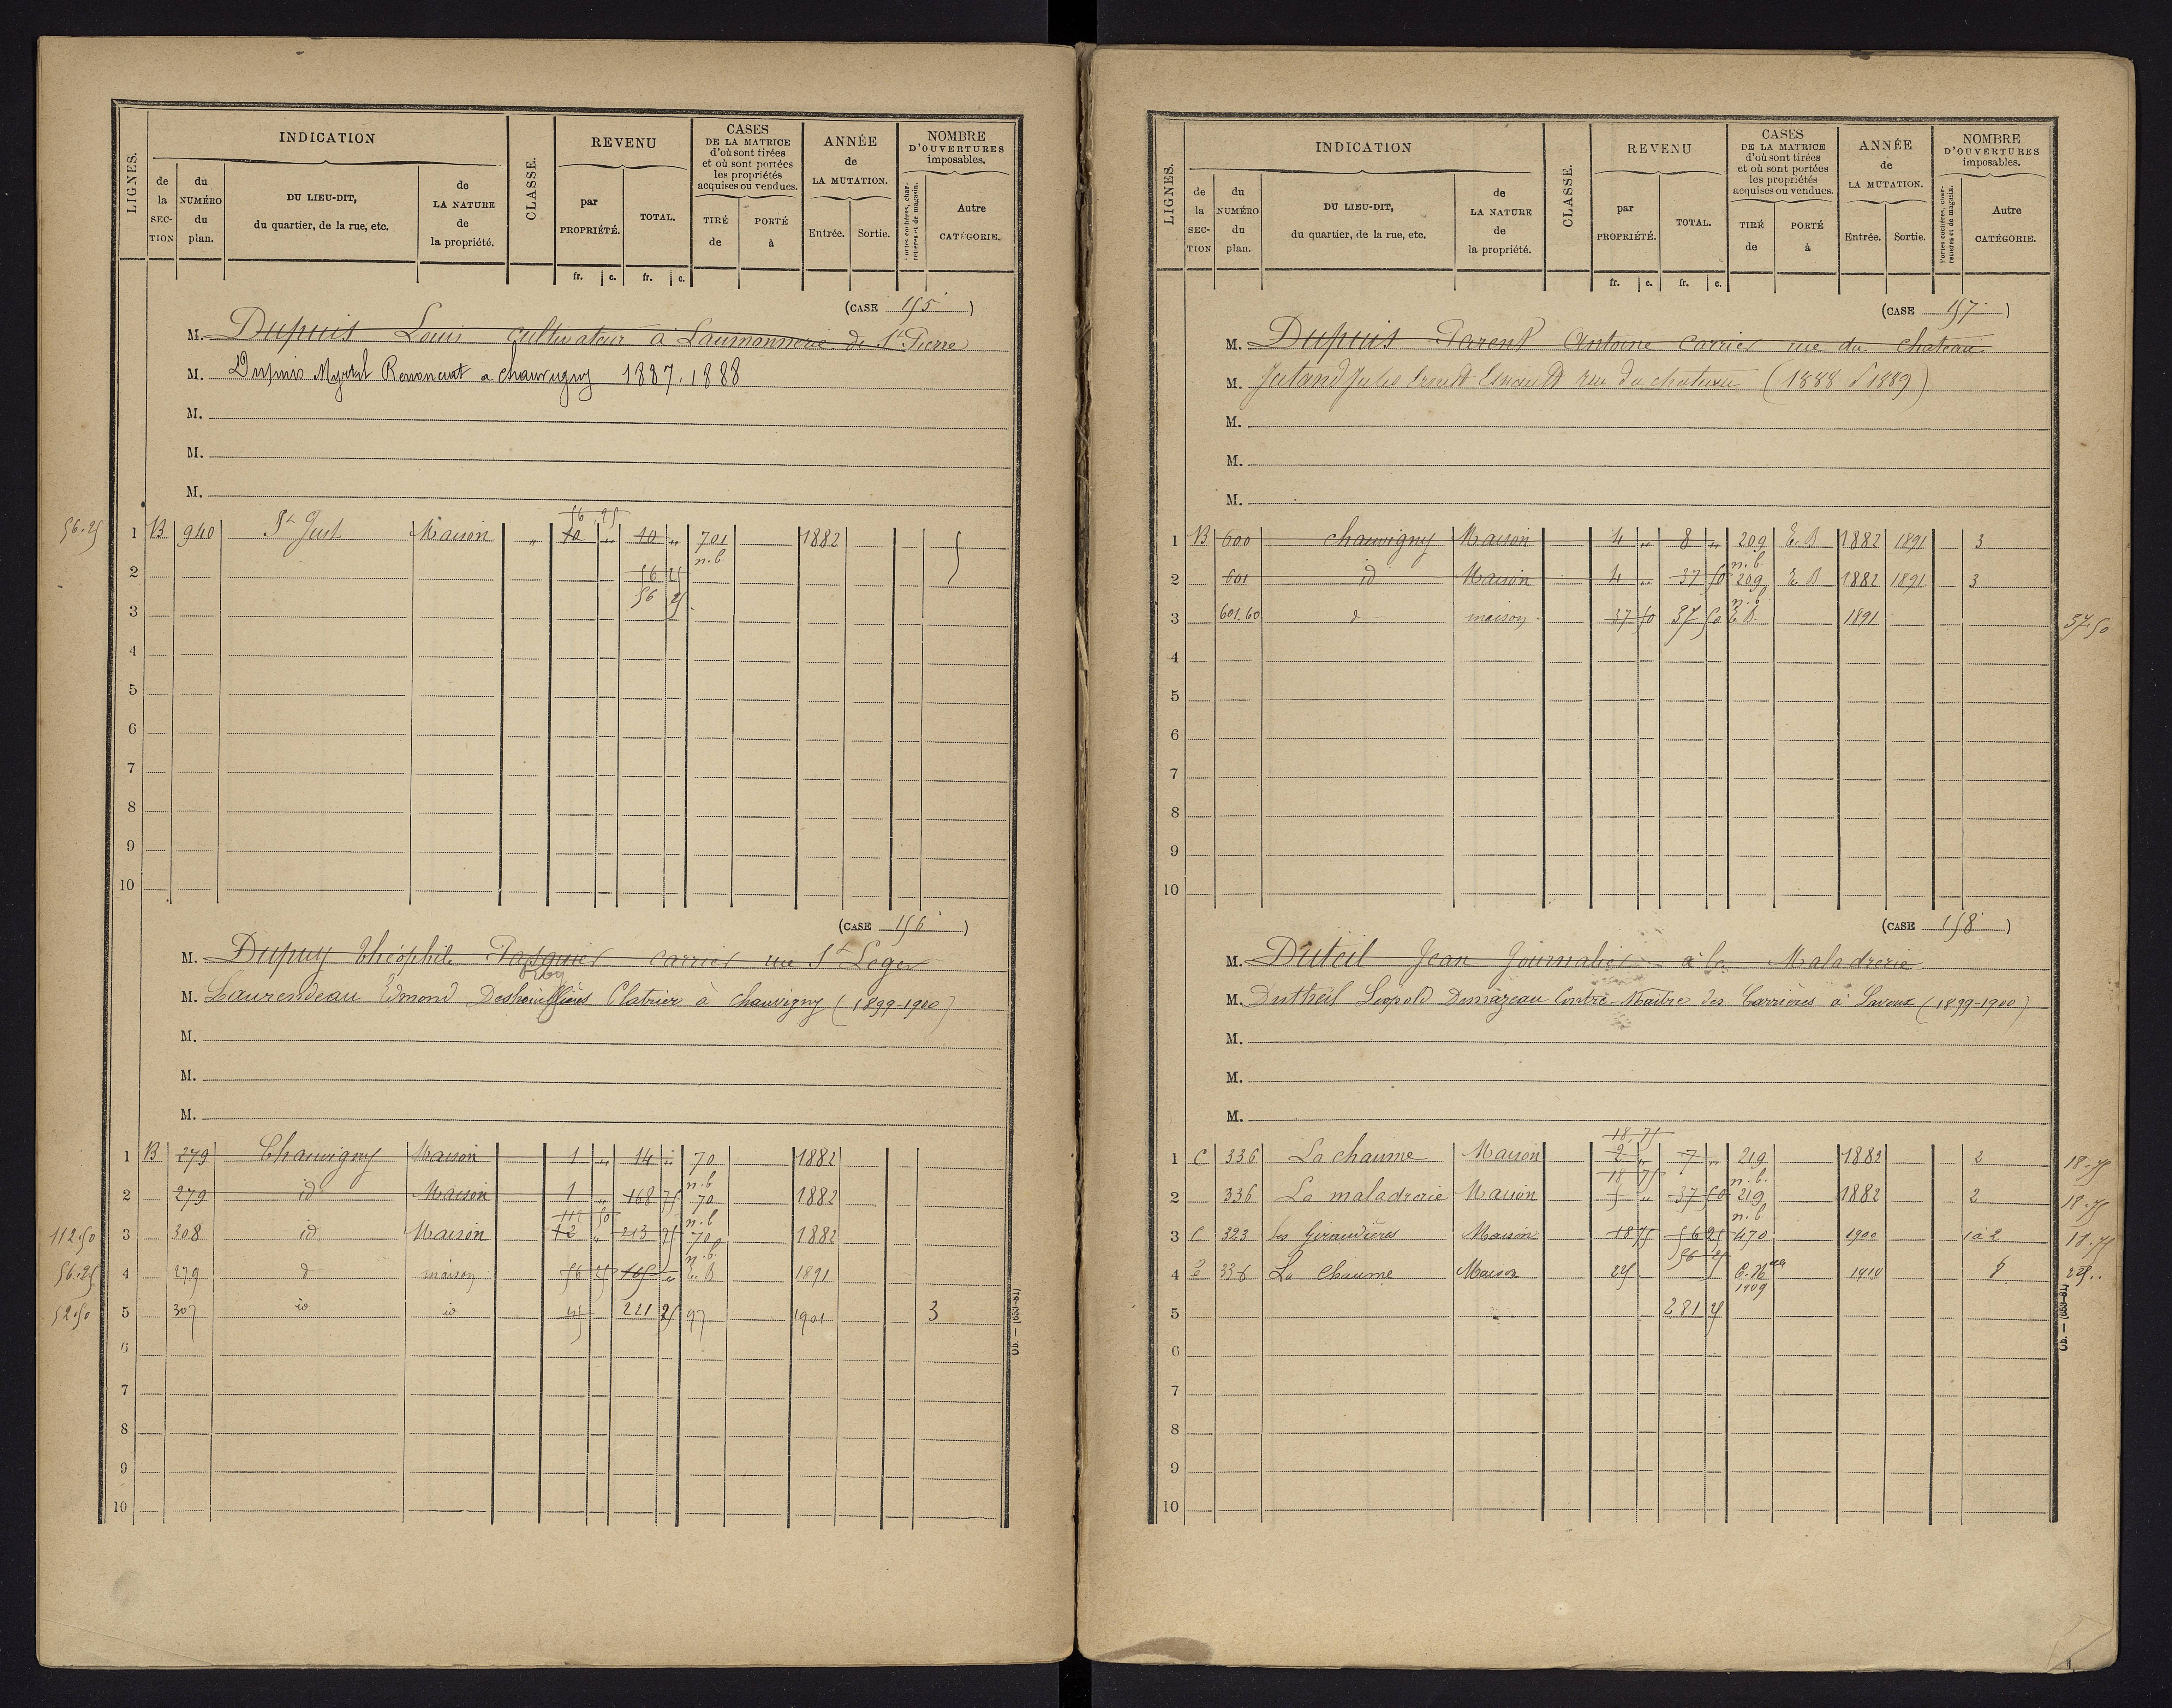 LIGNES.
INDICATION
de la SECTION
du NUMÉRO du plan.
DU LIEU-DIT, du quartier, de la rue, etc.
de LA NATURE de la propriété.
CLASSE.
REVENU
par PROPRIÉTÉ.
TOTAL.
fr. c. fr. c.
CASES DE LA MATRICE d'où sont tirées et où sont portées les propriétés acquises ou vendues.
TIRÉ de
PORTÉ à
ANNÉE de LA MUTATION.
Entrée. Sortie.
NOMBRE D'OUVERTURES imposables.
Portes cochères, charretières et de magasin.
Autre CATÉGORIE.
(CASE 155)
M. Dupuis Louis cultivateur à Laumonnerie de St Pierre
M. Dupuis Myrtil à chauvigny 1887. 1888
M.
M.
M.
56.25
56 25
1 B 940 St Just Maison " 10 " 10 " 701 1882
n.b.
2 56 25
3 56 25
4
5
6
7
8
9
10
(CASE 156)
M. Dupuy théophile Pasquier carrier rue St Léger
M. Laurendeau Edmond Plâtrier à Chauvigny (1899-1900)
M.
M.
M.
1 B 279 Chauvigny Maison 1 " 14 " 70 1882
n.b
2 279 id Maison 1 " 168 75 70 1882
112 50 n.b
112.50 3 308 id Maison 12 " 213 75 700 1882
n.b.
56.25 4 279 d maison 56 25 165 " E. B 1891
52.50 5 307 id id 45 221 25 97 1901 3
6
7
8
9
10
Ob. — (653-81)
LIGNES.
INDICATION
de la SECTION
du NUMÉRO du plan.
DU LIEU-DIT, du quartier, de la rue, etc.
de LA NATURE de la propriété.
CLASSE.
REVENU
par PROPRIÉTÉ.
TOTAL.
fr. c. fr. c.
CASES DE LA MATRICE d'où sont tirées et où sont portées les propriétés acquises ou vendues.
TIRÉ de
PORTÉ à
ANNÉE de LA MUTATION.
Entrée. Sortie.
NOMBRE D'OUVERTURES imposables.
Portes cochères, charretières et de magasin.
Autre CATÉGORIE.
(CASE 157)
M. Dupuis Parent Antoine carrier rue du Chateau
M. Jutand Jules Ernest rue du chateau (1888 1889)
M.
M.
M.
1 B 600 chauvigny Maison 4 " 8 " 209 E. B 1882 1891 3
n.b
2 601 id Maison 4 " 37 50 209 E. B 1882 1891 3
n.b
3 601.60 d maison 37 50 37 50 E. B. 1891 37.50
4
5
6
7
8
9
10
(CASE 158)
M. Duteil Jean Journalier à la Maladrerie
M. Dutheil Léopold Demazeau Contre-Maître des Carrières à Lavoux (1899-1900)
M.
M.
M.
18,75
1 C 336 La chaume Maison 2 " 7 " 219 1882 2 18.75
18 75 n.b.
2 336 La maladrerie Maison 5 " 37 50 219 1882 2 18.75
n.b
3 C 323 les Giraudières Maison 18 75 56 25 470 1900 1 à 2 18.75
56 25
4 336 La Chaume Maison 25 1910 25..
1909
5 281 25
6
7
8
9
10
Ob. — (653-81)